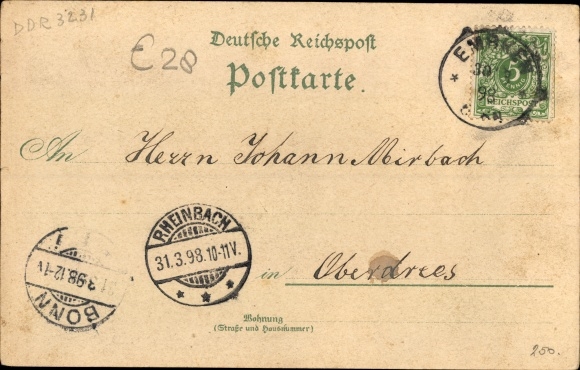 DDR 3231
€20
Deutsche Reichspost
Postkarte.
5
REICHSPOST
98
An Herrn Johann Mirbach
RHEINBACH
31.3.98.10-11V.
31.3.98.12-1
BONN
in Oberdrees
Wohnung
(Straße und Hausnummer)
250.